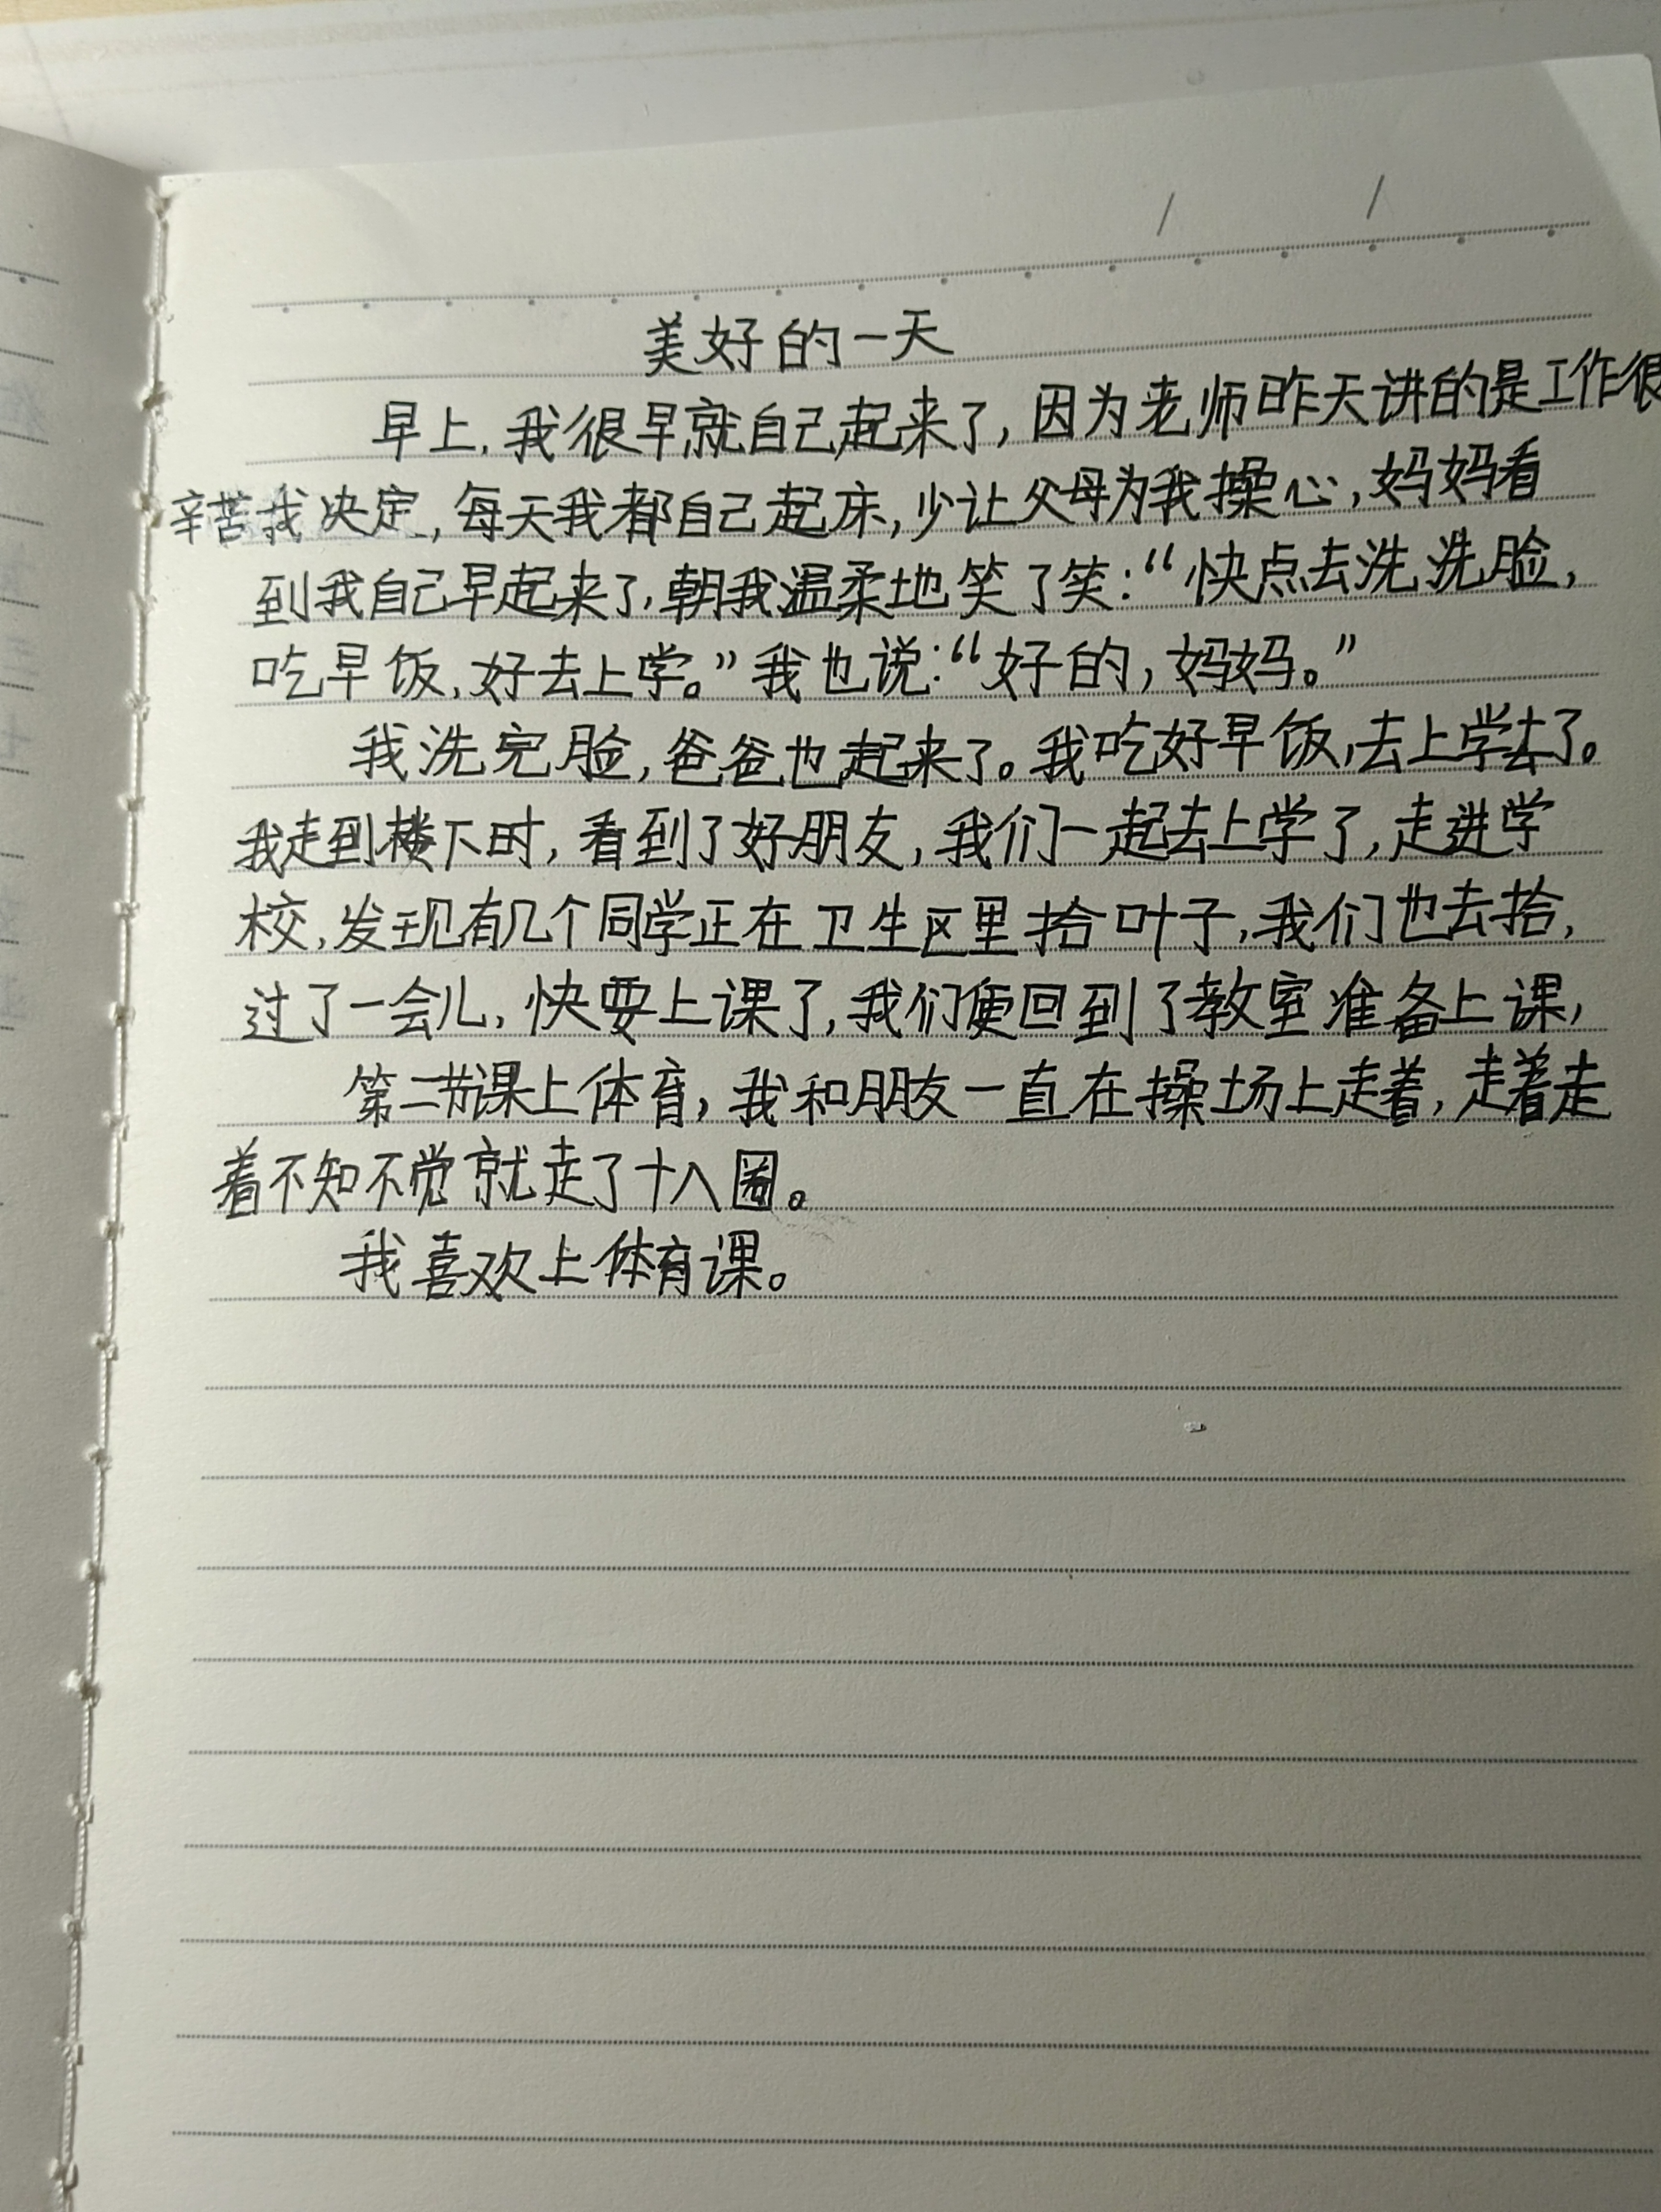 美好的一天
早上，我很早就自己起来了，因为老师昨天讲的是工作很
辛苦我决定，每天我都自己起床，少让父母为我操心，妈妈看
到我自己早起来了，朝我温柔地笑了笑：“快点去洗洗脸，
吃早饭，好去上学。”我也说：“好的，妈妈。”
我洗完脸，爸爸也起来了。我吃好早饭，去上学去了。
我走到楼下时，看到了好朋友，我们一起去上学了，走进学
校，发现有几个同学正在卫生区里拾叶子，我们也去拾，
过了一会儿，快要上课了，我们便回到了教室准备上课，
第二节课上体育，我和朋友一直在操场上走着，走着走
着不知不觉就走了十八圈。
我喜欢上体育课。